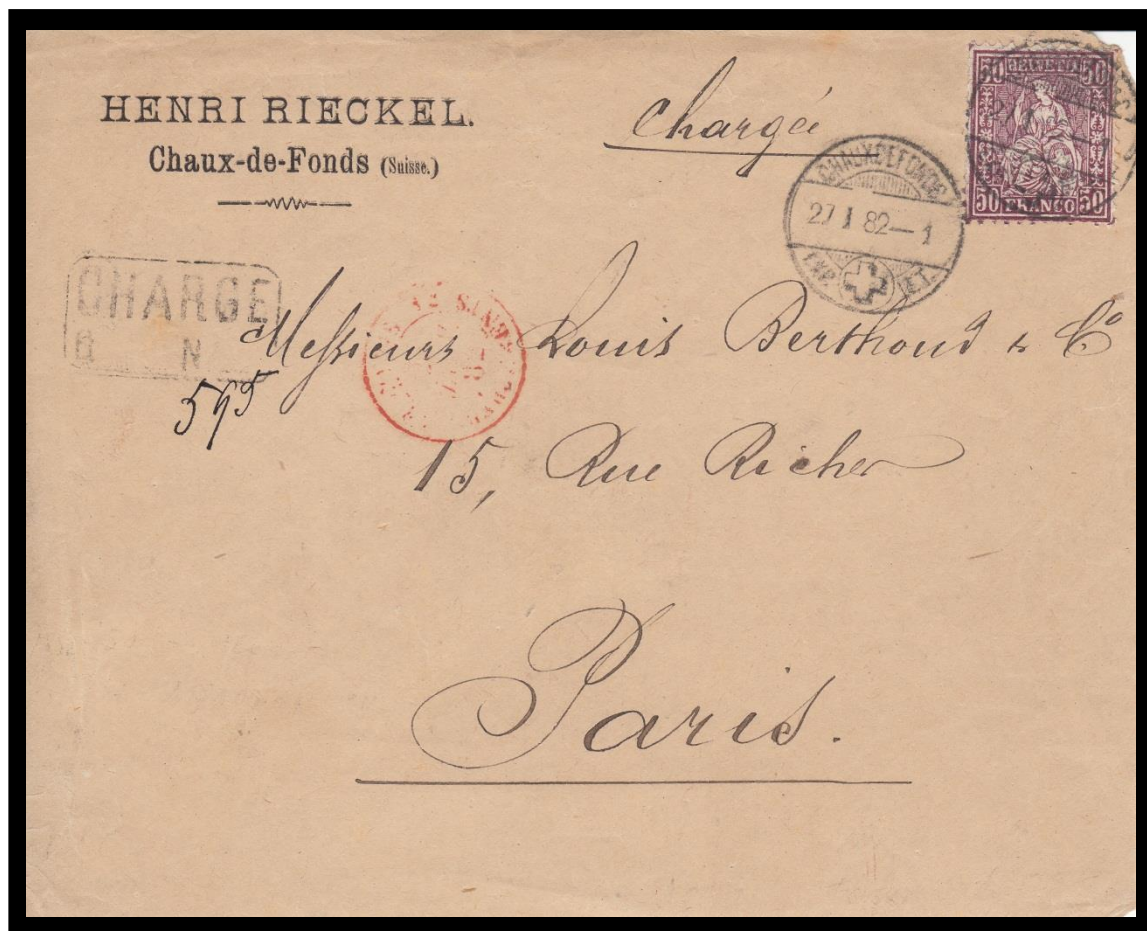 HENRI RIECKEL.
Chaux-de-Fonds (Suisse.)
Chargée
50 50
50 FRANCO 50
CHAUXDEFONDS
27 I 82—1
EXP. LET.
CHARGE
N
595
Messieurs Louis Berthoud & Cº
15, Rue Richer
Paris.